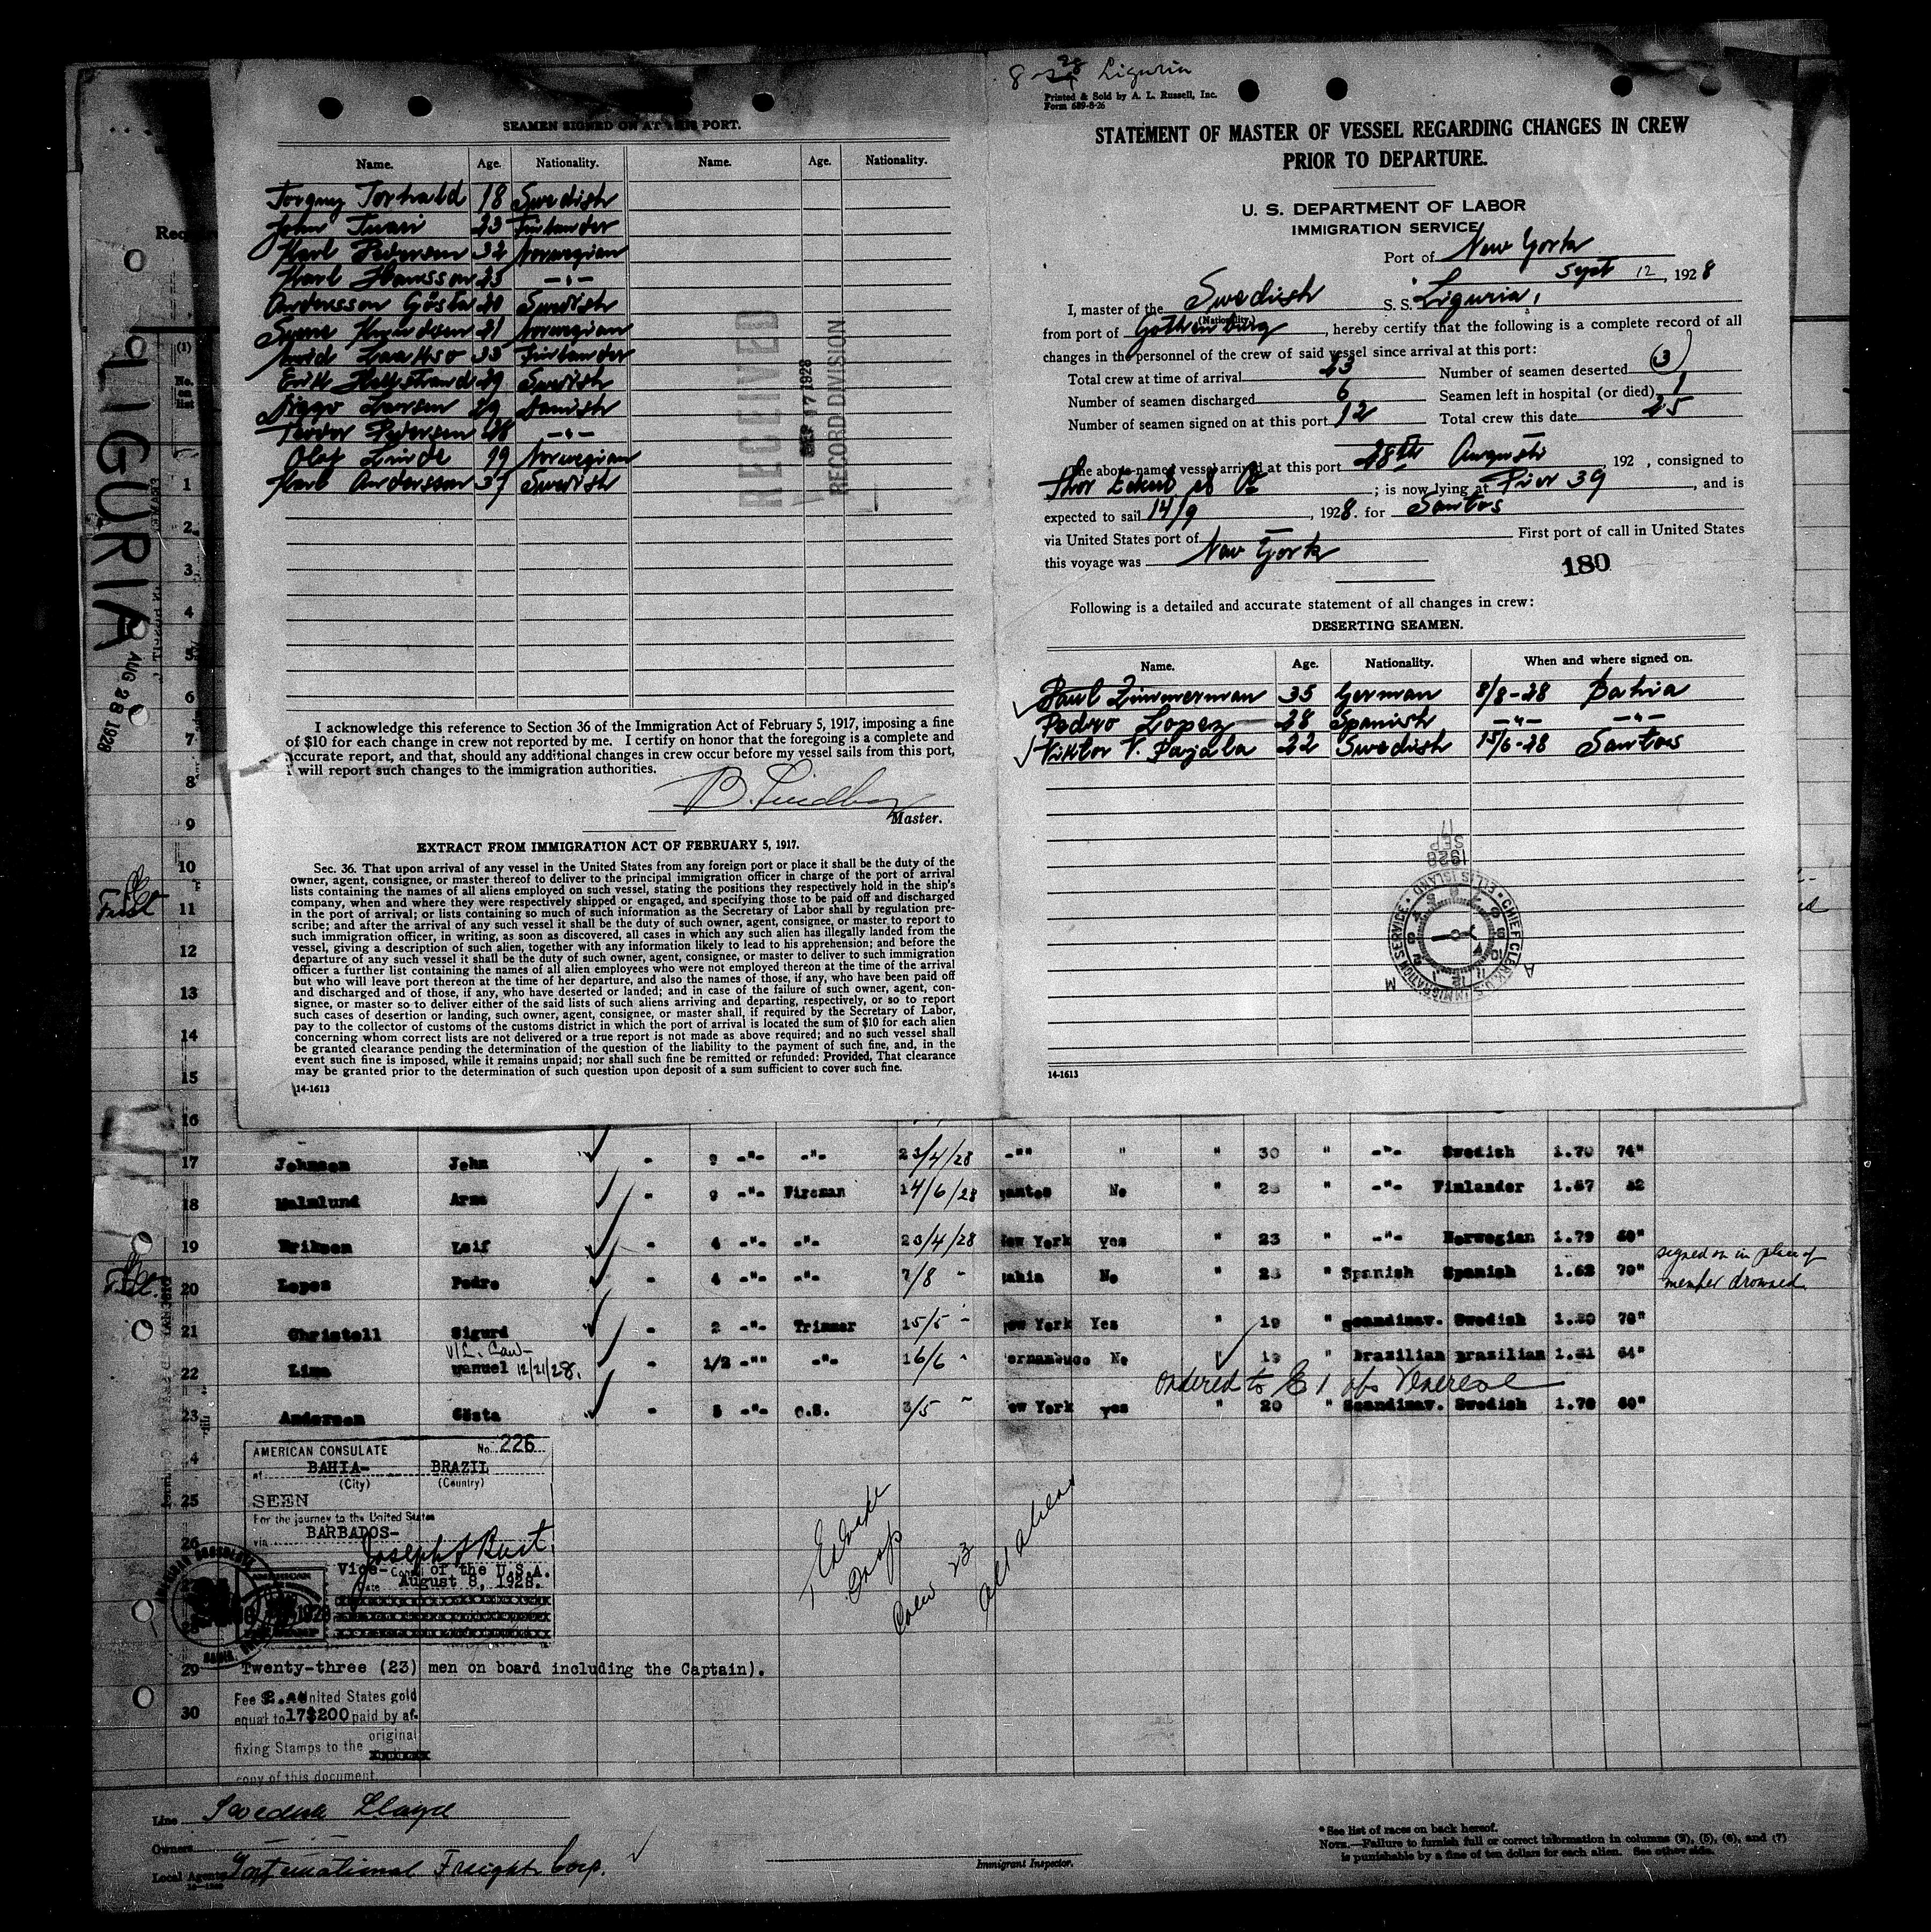 LIGURIA
AUG 28 1928
SEAMEN SIGNED ON AT THIS PORT.
Name. Age. Nationality. Name. Age. Nationality.
Torgny Torhald 18 Swedish
John Tuari 23 Finlander
Karl Pedersen 32 Norwegian
Karl Hansson 25 -"-
Andersson Gösta 20 Swedish
Knudsen 21 Norwegian
Arvid Laakso 33 Finlander
Erik Hallstrand 29 Swedish
Viggo Larsen 29 Danish
Teodor Pedersen 28 -"-
Olaf Linde 19 Norwegian
Karl Andersson 37 Swedish
RECEIVED
SEP 17 1928
RECORD DIVISION
I acknowledge this reference to Section 36 of the Immigration Act of February 5, 1917, imposing a fine
of $10 for each change in crew not reported by me. I certify on honor that the foregoing is a complete and
accurate report, and that, should any additional changes in crew occur before my vessel sails from this port,
I will report such changes to the immigration authorities.
B. Lindberg
Master.
EXTRACT FROM IMMIGRATION ACT OF FEBRUARY 5, 1917.
Sec. 36. That upon arrival of any vessel in the United States from any foreign port or place it shall be the duty of the
owner, agent, consignee, or master thereof to deliver to the principal immigration officer in charge of the port of arrival
lists containing the names of all aliens employed on such vessel, stating the positions they respectively hold in the ship's
company, when and where they were respectively shipped or engaged, and specifying those to be paid off and discharged
in the port of arrival; or lists containing so much of such information as the Secretary of Labor shall by regulation pre-
scribe; and after the arrival of any such vessel it shall be the duty of such owner, agent, consignee, or master to report to
such immigration officer, in writing, as soon as discovered, all cases in which any such alien has illegally landed from the
vessel, giving a description of such alien, together with any information likely to lead to his apprehension; and before the
departure of any such vessel it shall be the duty of such owner, agent, consignee, or master to deliver to such immigration
officer a further list containing the names of all alien employees who were not employed thereon at the time of the arrival
but who will leave port thereon at the time of her departure, and also the names of those, if any, who have been paid off
and discharged and of those, if any, who have deserted or landed; and in case of the failure of such owner, agent, con-
signee, or master so to deliver either of the said lists of such aliens arriving and departing, respectively, or so to report
such cases of desertion or landing, such owner, agent, consignee, or master shall, if required by the Secretary of Labor,
pay to the collector of customs of the customs district in which the port of arrival is located the sum of $10 for each alien
concerning whom correct lists are not delivered or a true report is not made as above required; and no such vessel shall
be granted clearance pending the determination of the question of the liability to the payment of such fine, and, in the
event such fine is imposed, while it remains unpaid; nor shall such fine be remitted or refunded: Provided, That clearance
may be granted prior to the determination of such question upon deposit of a sum sufficient to cover such fine.
14-1613
Liguria
Printed & Sold by A. L. Russell, Inc.
Form 689-8-26
STATEMENT OF MASTER OF VESSEL REGARDING CHANGES IN CREW
PRIOR TO DEPARTURE.
U. S. DEPARTMENT OF LABOR
IMMIGRATION SERVICE
Port of New York
Sept 12, 1928
I, master of the Swedish S. S. Liguria,
(Nationality.)
from port of Gothenburg, hereby certify that the following is a complete record of all
changes in the personnel of the crew of said vessel since arrival at this port:
Total crew at time of arrival 23 Number of seamen deserted 3
Number of seamen discharged 6 Seamen left in hospital (or died) 1
Number of seamen signed on at this port 12 Total crew this date 25
The above-named vessel arrived at this port 28th Augusti, 192 , consigned to
Thor Eckert & Co ; is now lying at Pier 39, and is
expected to sail 14/9, 1928. for Santos
via United States port of — First port of call in United States
this voyage was New York
180
Following is a detailed and accurate statement of all changes in crew:
DESERTING SEAMEN.
Name. Age. Nationality. When and where signed on.
Paul Zimmerman 35 German 8/8-28 Bahia
Pedro Lopez 28 Spanish -"- -"-
Viktor V. Pajala 22 Swedish 15/6-28 Santos
1928
SEP
17
CHIEF CLERK U.S. IMMIGRATION SERVICE • ELLIS ISLAND •
A M
14-1613
(1)
No. on list
1
2
3
4
5
6
7
8
9
10
11
12
13
14
15
16
17 Johnson John 9 -"- -"- 23/4/28 -"" " " 30 " -"- Swedish 1.70 74"
18 Malmlund Arne 9 -"- Fireman 14/6/28 Santos No " " -"- Finlander 1.67
19 Erikson Leif 4 -"- -"- 23/4/28 New York yes " 23 " -"- Norwegian 1.79 60"
20 Lopes Pedro 4 -"- -"- 7/8 - Bahia No " " Spanish Spanish 1.62 70"
signed on in place of
member drowned
21 Christell Sigurd 2 -"- Trimmer 15/5 - New York Yes " 19 " Scandinav. Swedish 78"
22 Lima Manuel 1/2 -"" -"- 16/6 - Pernambuco No " 19 " Brazilian Brazilian 64"
12/21/28.
ordered to E I obs Venereal
23 Anderson Gösta 5 -"- O.S. 3/5 - New York yes " 20 " Scandinav. Swedish 1.70 60"
25
26
29
30
AMERICAN CONSULATE No. 226
at BAHIA- BRAZIL
(City) (Country)
SEEN
For the journey to the United States
via BARBADOS-
Vice-Consul of the U.S.A.
Date August 8, 1928.
Crew 23
all aliens
Twenty-three (23) men on board including the Captain).
Fee United States gold
equal to 17$200 paid by af-
fixing Stamps to the original
copy of this document
Line Swedish Lloyd
Owners -"-
Local Agents International Freight Corp.
Immigrant Inspector.
*See list of races on back hereof.
NOTE.—Failure to furnish full or correct information in columns (2), (5), (6), and (7)
is punishable by a fine of ten dollars for each alien. See other side.